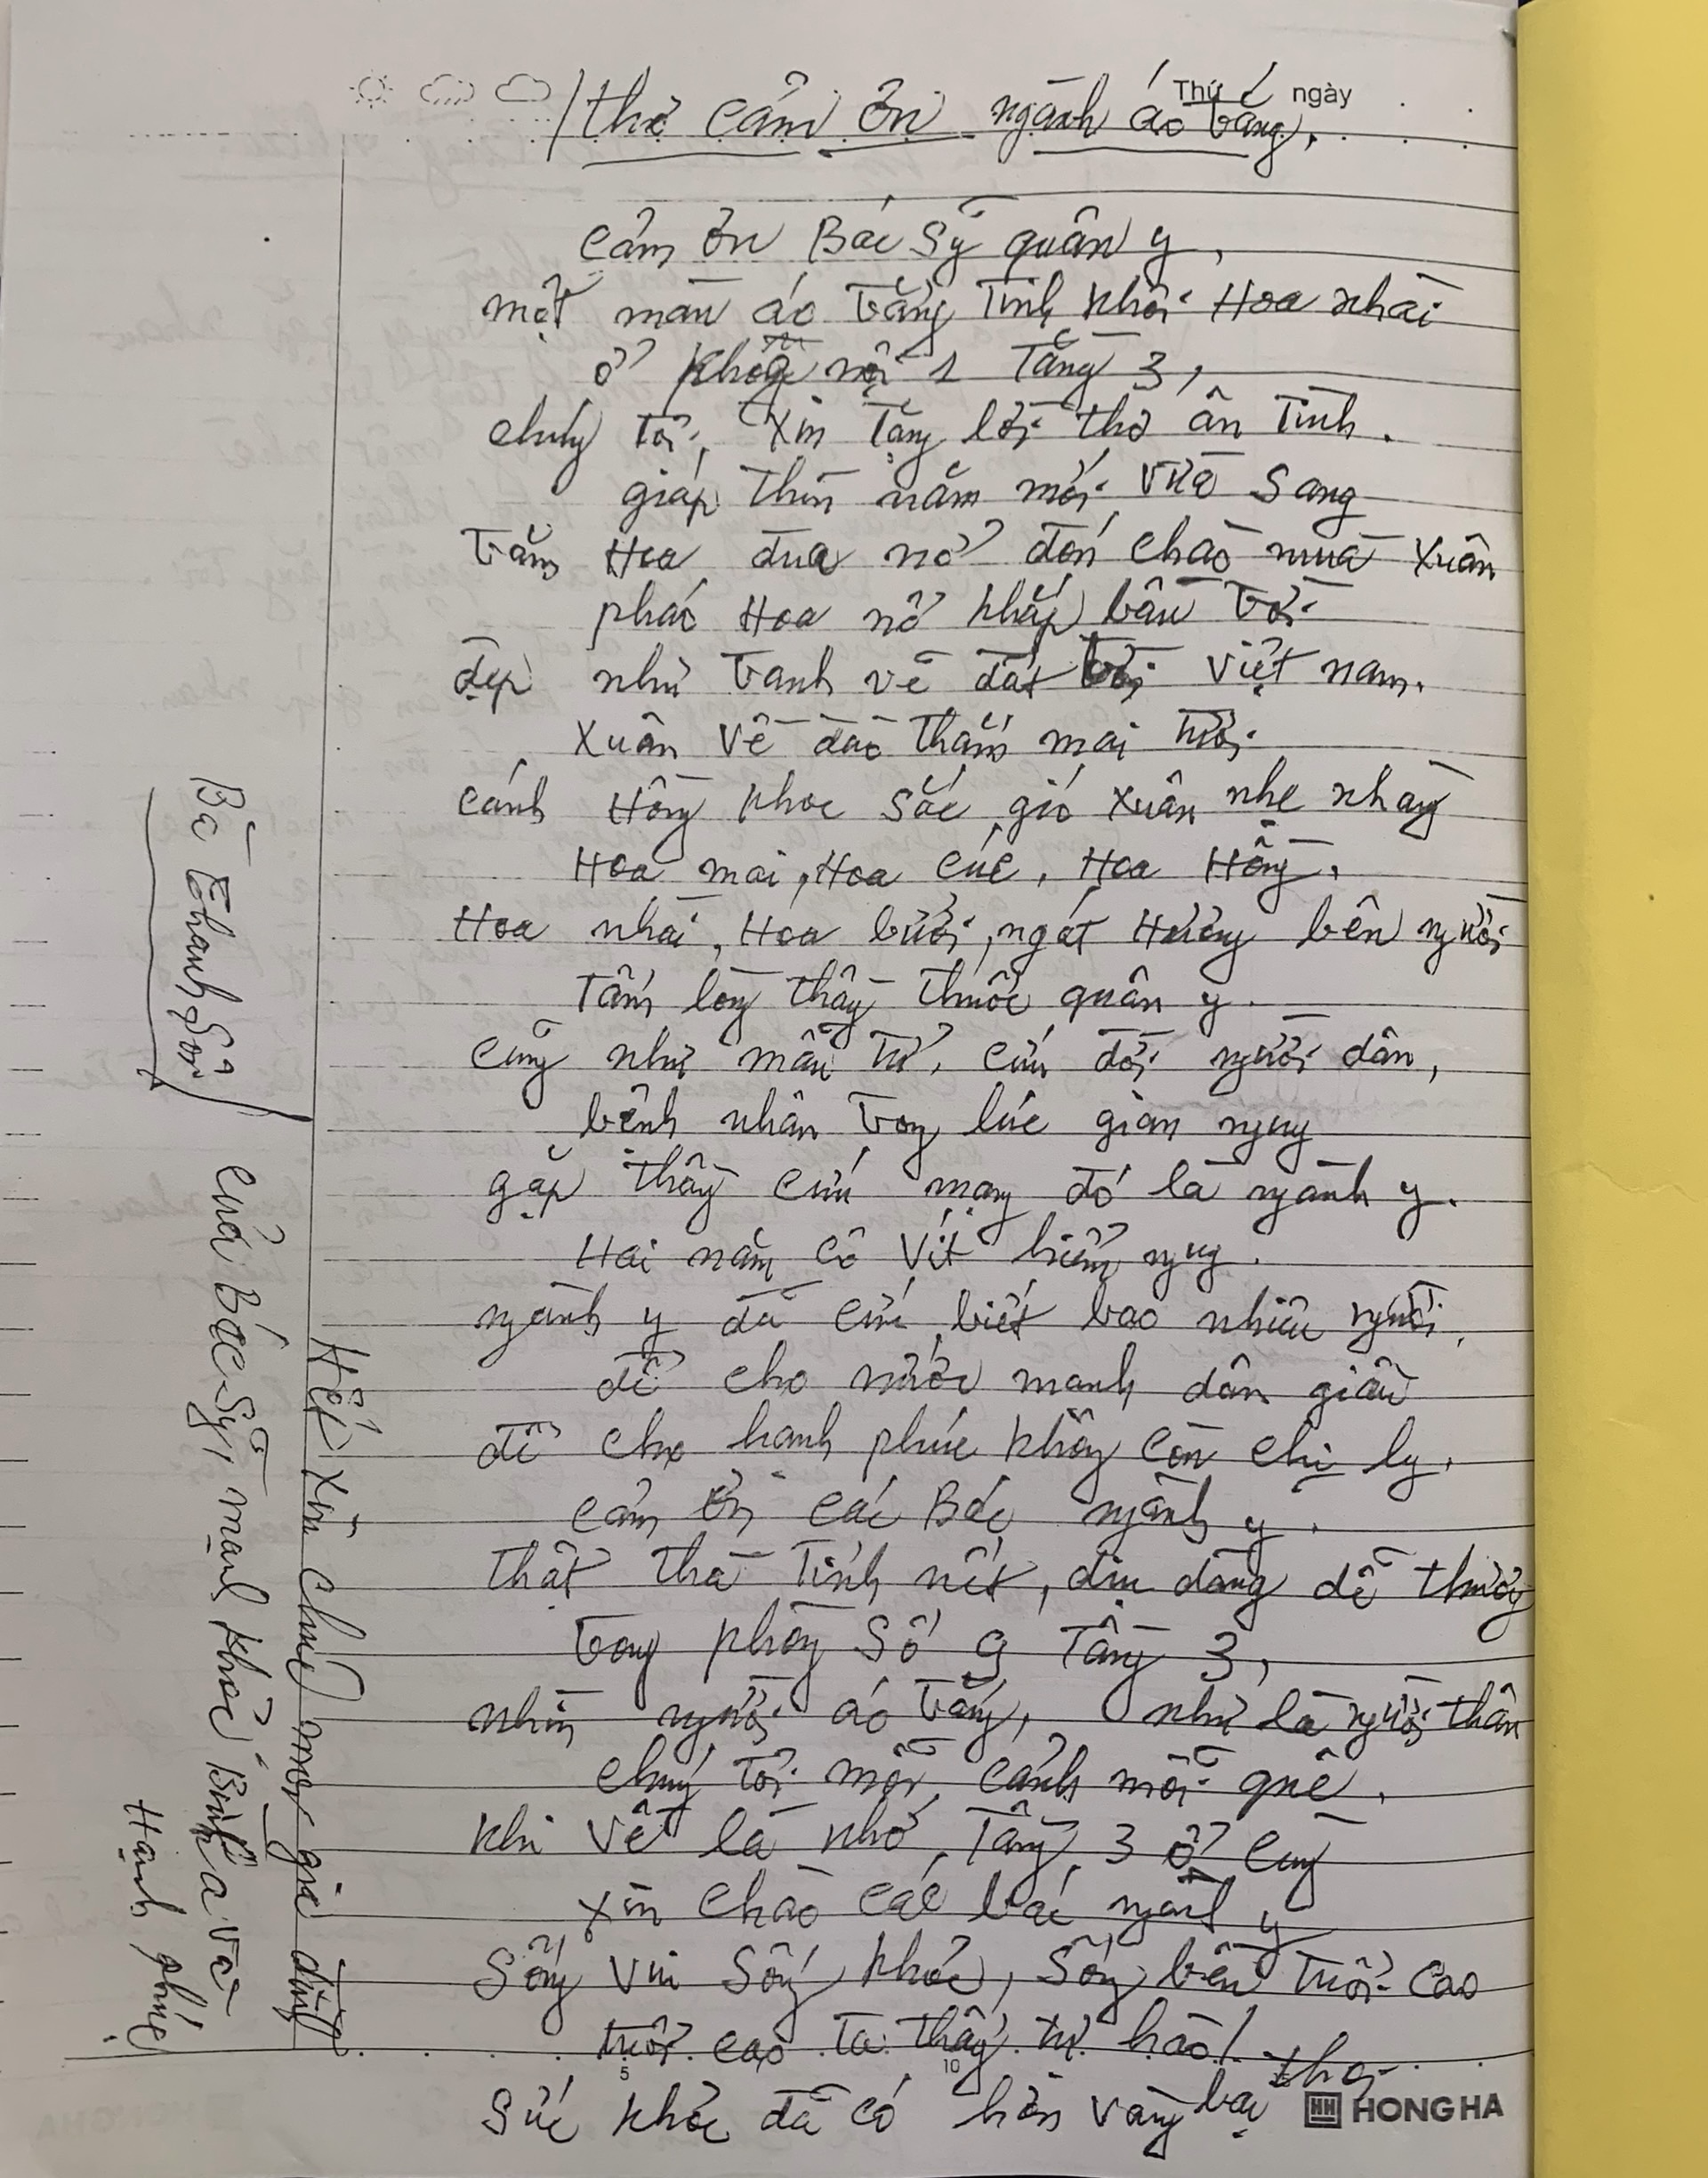 Thứ ngày
thơ cảm ơn ngành áo trắng.
cảm ơn Bác Sỹ quân y,
một màu áo trắng Tinh khôi Hoa nhài
ở nội 1 Tầng 3,
chúng tôi, xin Tặng lời thơ ân Tình.
giáp thìn năm mới vừa Sang
Trăm Hoa đua nở đón chào mùa xuân
pháo Hoa nở khắp bầu trời
đẹp như tranh vẽ đất trời việt nam.
xuân về đào thắm mai tươi
cánh Hồng khoe sắc gió xuân nhẹ nhàng
Hoa mai, Hoa cúc, Hoa Hồng,
Hoa nhài, Hoa bưởi, ngát Hương bên người
Tấm lòng thầy thuốc quân y.
cũng như mẫu tử, cứu đời người dân,
bệnh nhân trong lúc gian nguy
gặp thầy cứu mạng đó là ngành y.
Hai năm cô Vít hiểm nguy.
ngành y đã cứu biết bao nhiêu người,
để cho nước mạnh dân giầu
để cho hạnh phúc không còn chi ly.
cảm ơn các Bác ngành y.
thật thà Tính nết, dịu dàng dễ thương
trong phòng số 9 Tầng 3,
nhìn người áo trắng, như là người thân
chúng tôi mỗi cảnh mỗi quê,
khi về là nhớ, Tầng 3 ở cùng
xin chào các bác ngành y
Sống vui sống khỏe, sống bền tuổi cao
tuổi cao ta thấy tự hào!
Sức khỏe đã có hòn vàng bạc thoi
5 10
HH HONG HA
Hết xin chúc mọi gia đình
của Bác Sỹ, mạnh khỏe Bình an và
Hạnh phúc
Bà Thanh Sơn